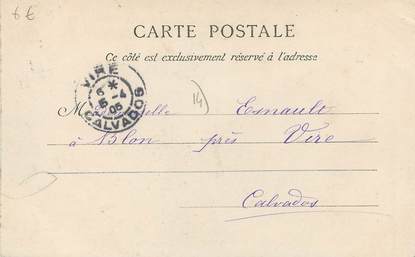 6€
CARTE POSTALE
Ce côté est exclusivement réservé à l'adresse
VIRE
6 *
5-4
05
CALVADOS
14
Mademoiselle Esnault
à Blon près Vire
Calvados